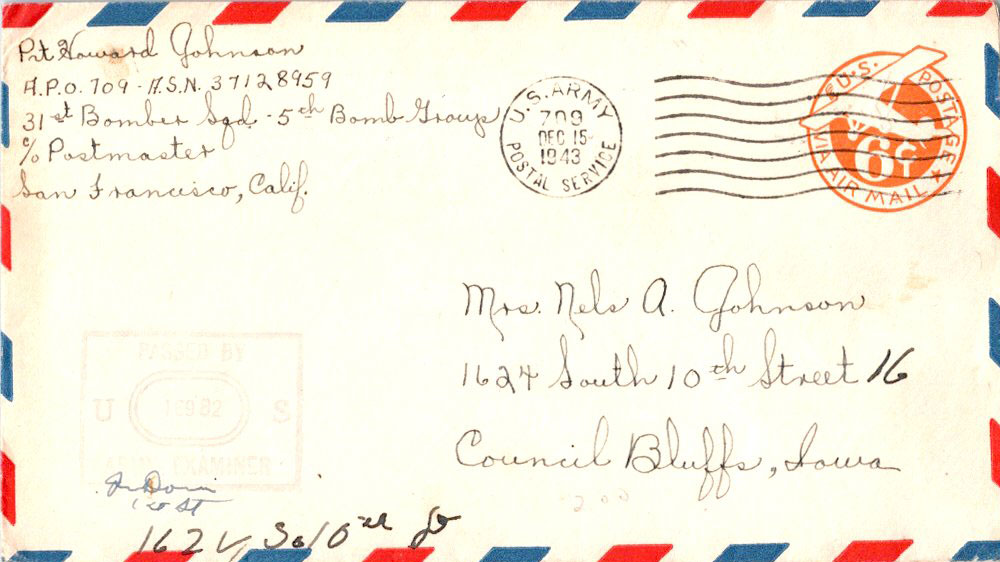 Pvt Howard Johnson
A.P.O. 709 - A.S.N. 37128959
31st Bomber Sqd - 5th Bomb Group
c/o Postmaster
San Francisco, Calif.
U.S. ARMY
709
DEC 15
1943
POSTAL SERVICE
U.S. POSTAGE
6¢
VIA AIR MAIL
Mrs. Nels A. Johnson
1624 South 10th Street 16
Council Bluffs, Iowa
PASSED BY
U S
ARMY EXAMINER